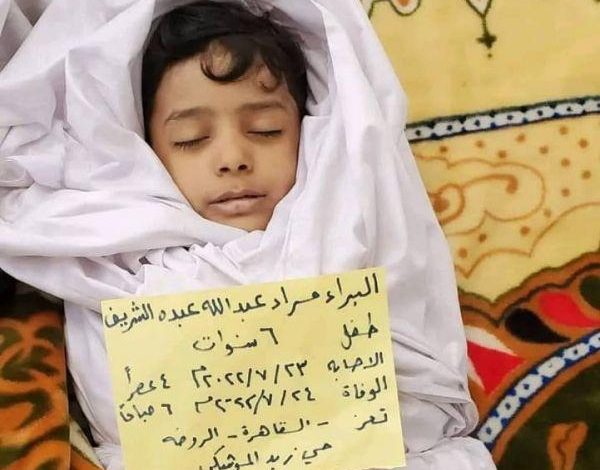 البراء مراد عبدالله عبده الشريف
طفل ٦ سنوات
الاصابه ٢٠٢٢/٧/٢٣م ٤ عصراً
الوفاة ٢٠٢٢/٧/٢٤م ٦ صباحاً
تعز - القاهرة - الروضه
حي زيد الموشكي